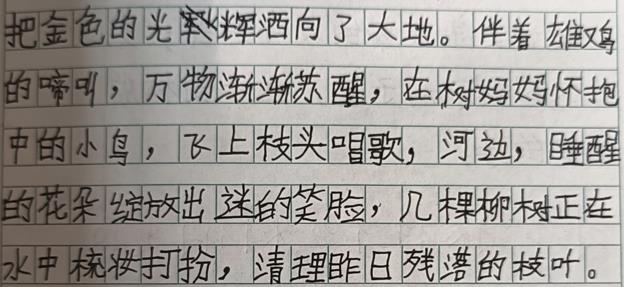 把金色的光辉洒向了大地。伴着雄鸡
的啼叫，万物渐渐苏醒，在树妈妈怀抱
中的小鸟，飞上枝头唱歌，河边，睡醒
的花朵绽放出迷的笑脸，几棵柳树正在
水中梳妆打扮，清理昨日残落的枝叶。